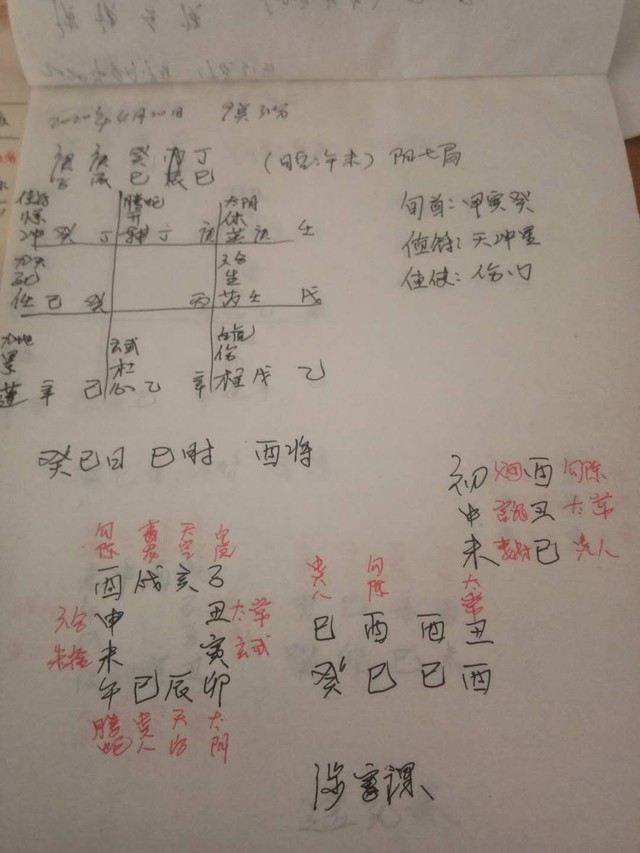 2020年4月20日 9点31分
庚 庚 癸 丙 丁
子 辰 巳 辰 巳
(日空:午未) 阳七局
旬首:甲寅癸
值符:天冲星
值使:伤门
值符 螣蛇 太阴
休
冲 癸 丁 丁 庚 庚 壬
九天 六合
死 生
任 己 癸 丙 芮 壬 戊
九地 玄武 白虎
杜 伤
蓬 辛 己 心 乙 辛 柱 戊 乙
癸巳日 巳时 酉将
初 酉 勾陈
中 丑 太常
末 巳 贵人
勾陈 青龙 天空 白虎
酉 戌 亥 子
六合 申 丑 太常
朱雀 未 寅 玄武
午 巳 辰 卯
螣蛇 贵人 天后 太阴
贵人 勾陈 太常
巳 酉 酉 丑
癸 巳 巳 酉
涉害课